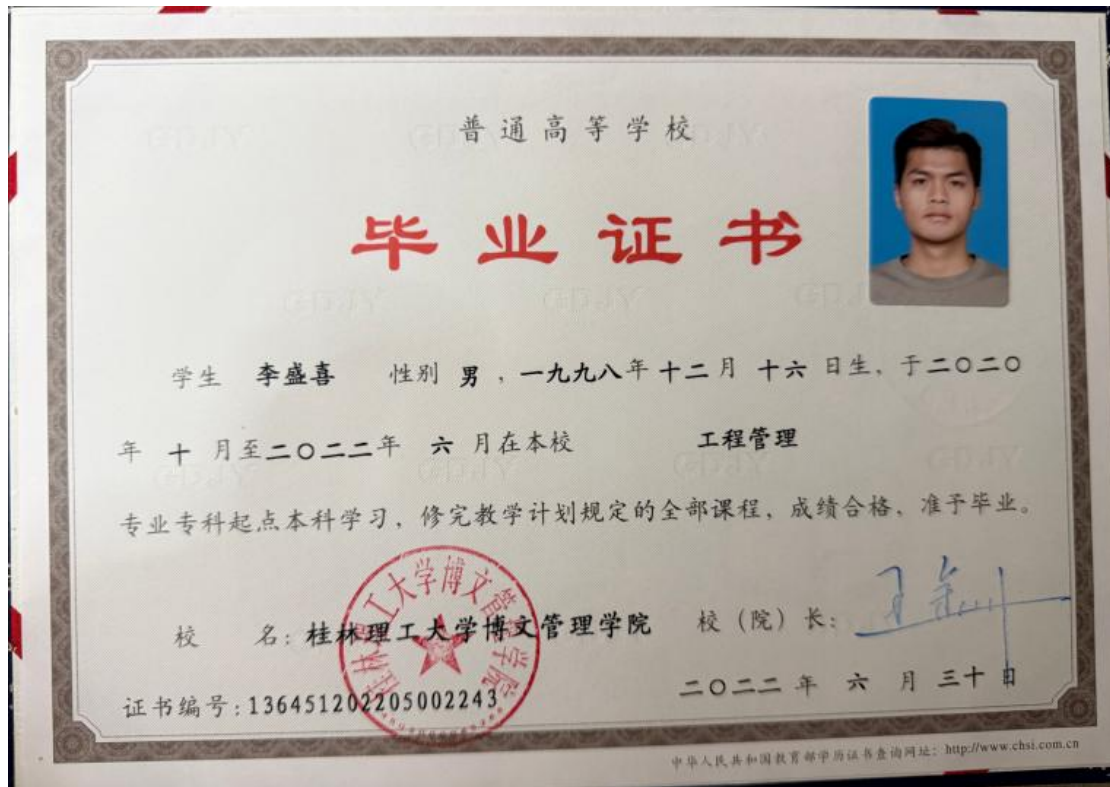 普通高等学校
毕业证书
学生 李盛喜 性别 男 ，一九九八年 十二 月 十六 日生，于二〇二〇
年 十 月至二〇二二年 六 月在本校 工程管理
专业专科起点本科学习，修完教学计划规定的全部课程，成绩合格，准予毕业。
校 名：桂林理工大学博文管理学院 校（院）长：
桂林理工大学博文管理学院
证书编号：136451202205002243 二〇二二 年 六 月 三十 日
中华人民共和国教育部学历证书查询网址：http://www.chsi.com.cn